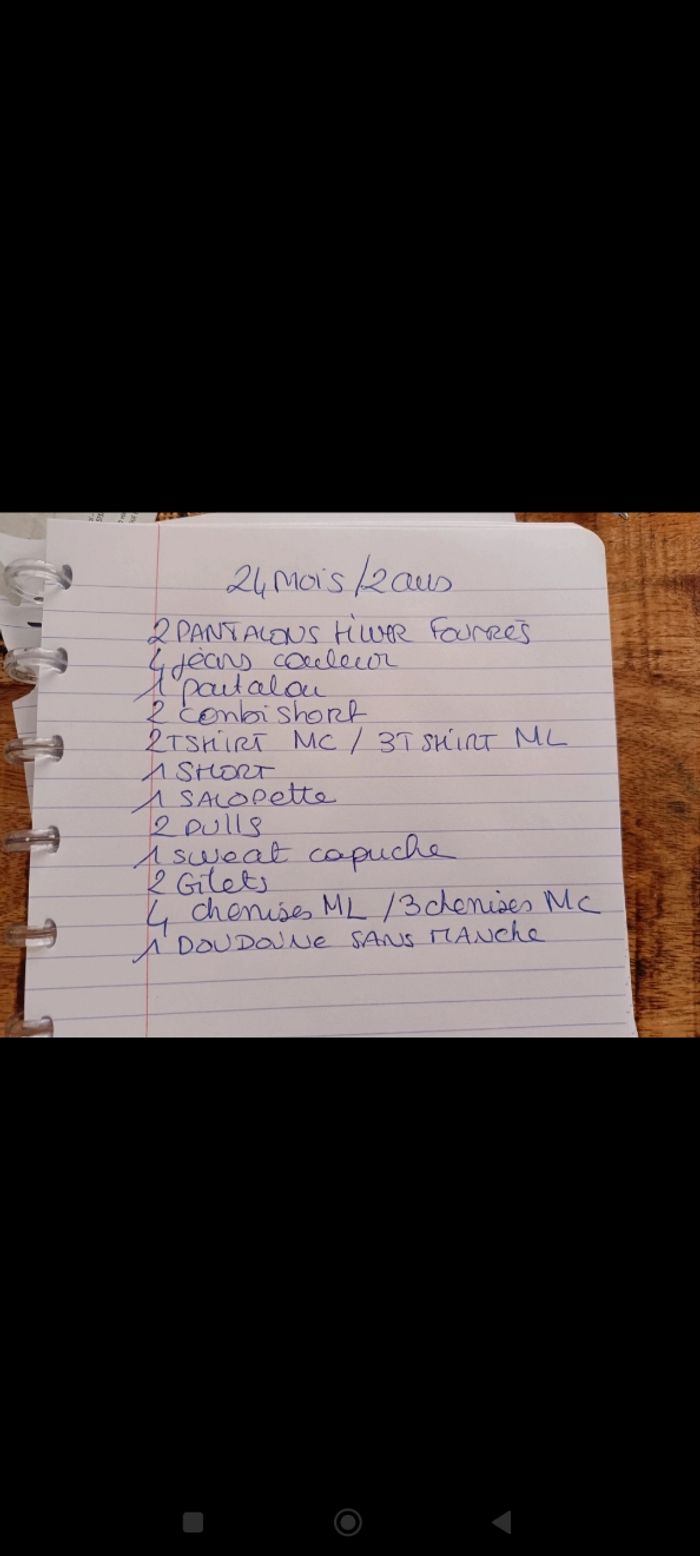 24 mois / 2 ans
2 PANTALONS HIVER FOURRÉS
4 jeans couleur
1 pantalon
2 combishort
2 TSHIRT MC / 3 TSHIRT ML
1 SHORT
1 SALOPETTE
2 PULLS
1 sweat capuche
2 Gilets
4 chemises ML / 3 chemises MC
1 DOUDOUNE SANS MANChe